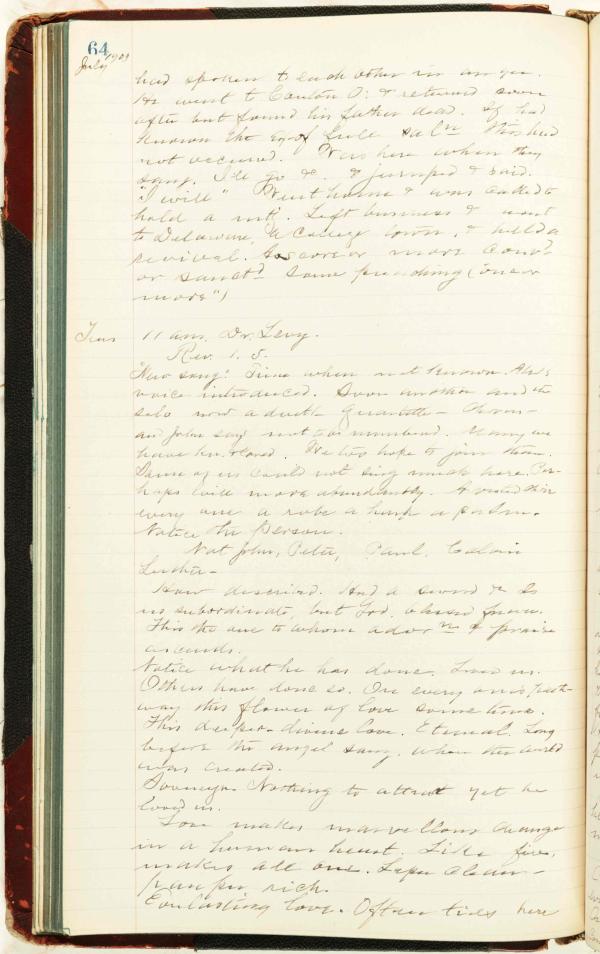 64
July 1901
had spoken to each other in anger.
He went to Canton O. & returned soon
after but found his father dead. If had
known the of full sal'n this had
not occurred. Was here when they
sang. I'll go &c. & jumped & said.
"I will" Went home & was called to
hold a mtg. Left business & went
to Delaware, a College town, & held a
revival. score or more conv'd
or sanct'd some preaching (one or
more")
Tues 11 am. Dr. Levy.
Rev. 1. 5.
"New song." Time when not known. A
voice introduced. Soon another and the
solo now a duet - Quartette - Chorus -
and John says not to be numbered. Many we
have loved. We too hope to join them.
Some of us could not sing much here. Per-
haps will more abundantly.
every one a robe a harp a palm.
Notice the Person.
Not John, Peter, Paul, Calvin
Luther -
How described. Had a sword &
us subordinate, but God,
This the one to whom ador'n & praise
ascends.
Notice what he has done. Loved us.
Others have done so. On every one's path-
way this flower of love sometime.
This deeper - divine love. Eternal. Long
before the angel sang, when the world
was created.
Sovereign. Nothing to attract yet he
loved us.
Love makes marvellous change
in a human heart. Like fire,
makes all one. Leper clean -
pauper rich.
Everlasting love. Often ties here